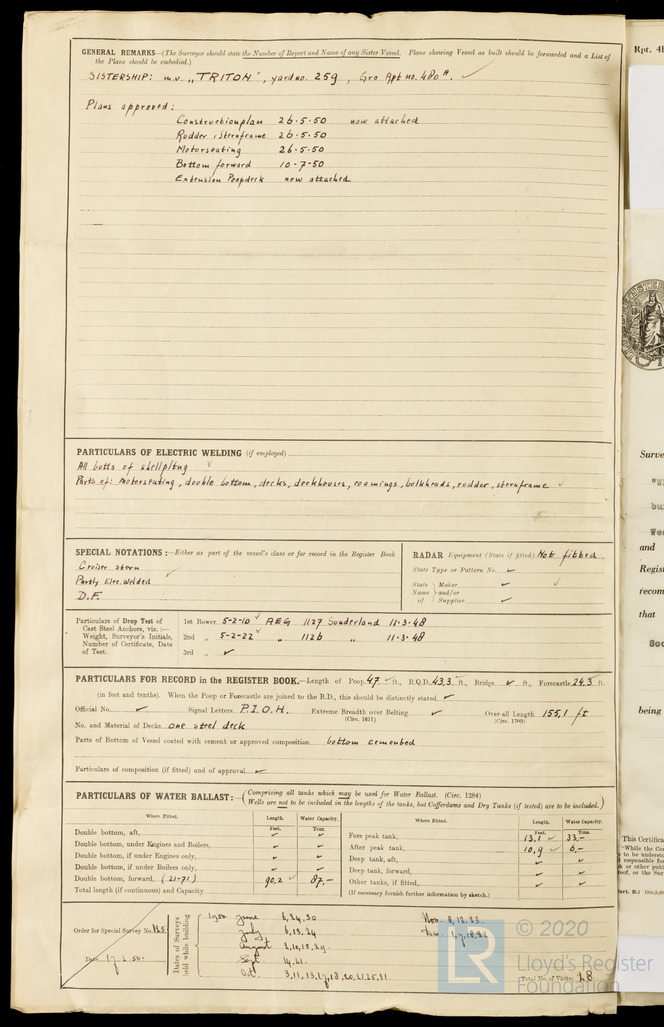 GENERAL REMARKS—(The Surveyor should state the Number of Report and Name of any Sister Vessel. Plans showing Vessel as built should be forwarded and a List of
the Plans should be embodied.)
SISTERSHIP: m.v. "TRITON", yard no. 259, Gro Rpt no. 480A. ✓
Plans approved:
Constructionplan 26·5·50 now attached
Rudder, sternframe 26·5·50
Motorseating 26·5·50
Bottom forward 10·7·50
Extension Poopdeck now attached
PARTICULARS OF ELECTRIC WELDING (if employed)
All butts of shellplting ✓
Parts of: Motorseating, double bottom, decks, deckhouses, coamings, bulkheads, rudder, sternframe ✓
SPECIAL NOTATIONS:—Either as part of the vessel's class or for record in the Register Book
Cruiser stern
Partly Elec. welded ✓
D.F.
RADAR Equipment (State if fitted) Not fitted.
State Type or Pattern No. ✓
State Name of } Maker and/or Supplier ✓ ✓ ✓
Particulars of Drop Test of
Cast Steel Anchors, viz.:—
Weight, Surveyor's Initials,
Number of Certificate, Date
of Test.
1st Bower 5-2-10 ✓ AEG 1127 Sunderland 11·3·48
2nd „ 5-2-22 ✓ „ 1126 „ 11·3·48
3rd „ ✓
PARTICULARS FOR RECORD in the REGISTER BOOK.—Length of Poop 47 ✓ ft., R.Q.D. 43,3 ft., Bridge ✓ ft., Forecastle 24,3 ft.
(in feet and tenths). When the Poop or Forecastle are joined to the B.D., this should be distinctly stated. ✓
Official No. ✓ Signal Letters P.I.O.H. Extreme Breadth over Belting ✓ Over-all Length 155,1 ft
(Circ. 1611) (Circ. 1703)
No. and Material of Decks one steel deck
Parts of Bottom of Vessel coated with cement or approved composition bottom cemented
Particulars of composition (if fitted) and of approval ✓
PARTICULARS OF WATER BALLAST:—(Comprising all tanks which may be used for Water Ballast. (Circ. 1284)
Wells are not to be included in the lengths of the tanks, but Cofferdams and Dry Tanks (if tested) are to be included.)
Where Fitted. Length. Water Capacity. Where Fitted. Length. Water Capacity.
Feet. Tons. Feet. Tons.
Double bottom, aft, ✓ ✓ Fore peak tank, 13,1 ✓ 33,—
Double bottom, under Engines and Boilers, ✓ ✓ After peak tank, 10,9 ✓ 6,—
Double bottom, if under Engines only, ✓ ✓ Deep tank, aft, ✓ ✓
Double bottom, if under Boilers only, ✓ ✓ Deep tank, forward, ✓ ✓
Double bottom, forward, (21-71) 90,2 ✓ 87,— Other tanks, if fitted, ✓ ✓
Total length (if continuous) and Capacity (If necessary furnish further information by sketch.)
Order for Special Survey No.
Date
Dates of Surveys
held while building
1950 June 6,24,30 Nov. 8,13,23
July 6,13,24 Dec.
August 2,10,15,29
Sept 14,21
Oct. 3,11,13,17,18,20,21,25,31
Total No. of Visits 28
© 2020
LR
Lloyd's Register
Foundation
Rpt. 4
Surve
bu
We
and
Regist
recom
that
Soc
being
This Certifica